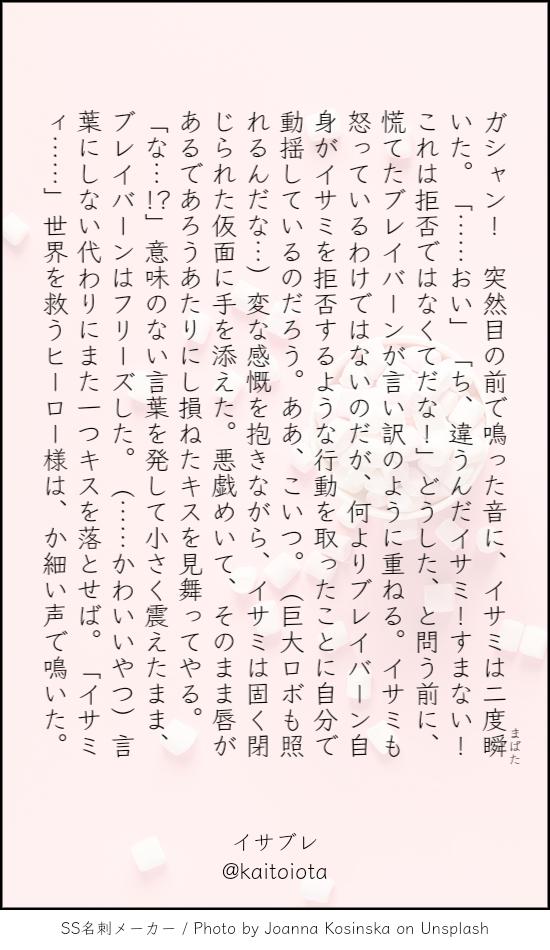 ガシャン！　突然目の前で鳴った音に、イサミは二度瞬
まばた
いた。「……おい」「ち、違うんだイサミ！すまない！
これは拒否ではなくてだな！」どうした、と問う前に、
慌てたブレイバーンが言い訳のように重ねる。イサミも
怒っているわけではないのだが、何よりブレイバーン自
身がイサミを拒否するような行動を取ったことに自分で
動揺しているのだろう。ああ、こいつ。（巨大ロボも照
れるんだな…）変な感慨を抱きながら、イサミは固く閉
じられた仮面に手を添えた。悪戯めいて、そのまま唇が
あるであろうあたりにし損ねたキスを見舞ってやる。
「な…!?」意味のない言葉を発して小さく震えたまま、
ブレイバーンはフリーズした。（……かわいいやつ）言
葉にしない代わりにまた一つキスを落とせば。「イサミ
ィ……」世界を救うヒーロー様は、か細い声で鳴いた。
イサブレ
@kaitoiota
SS名刺メーカー / Photo by Joanna Kosinska on Unsplash